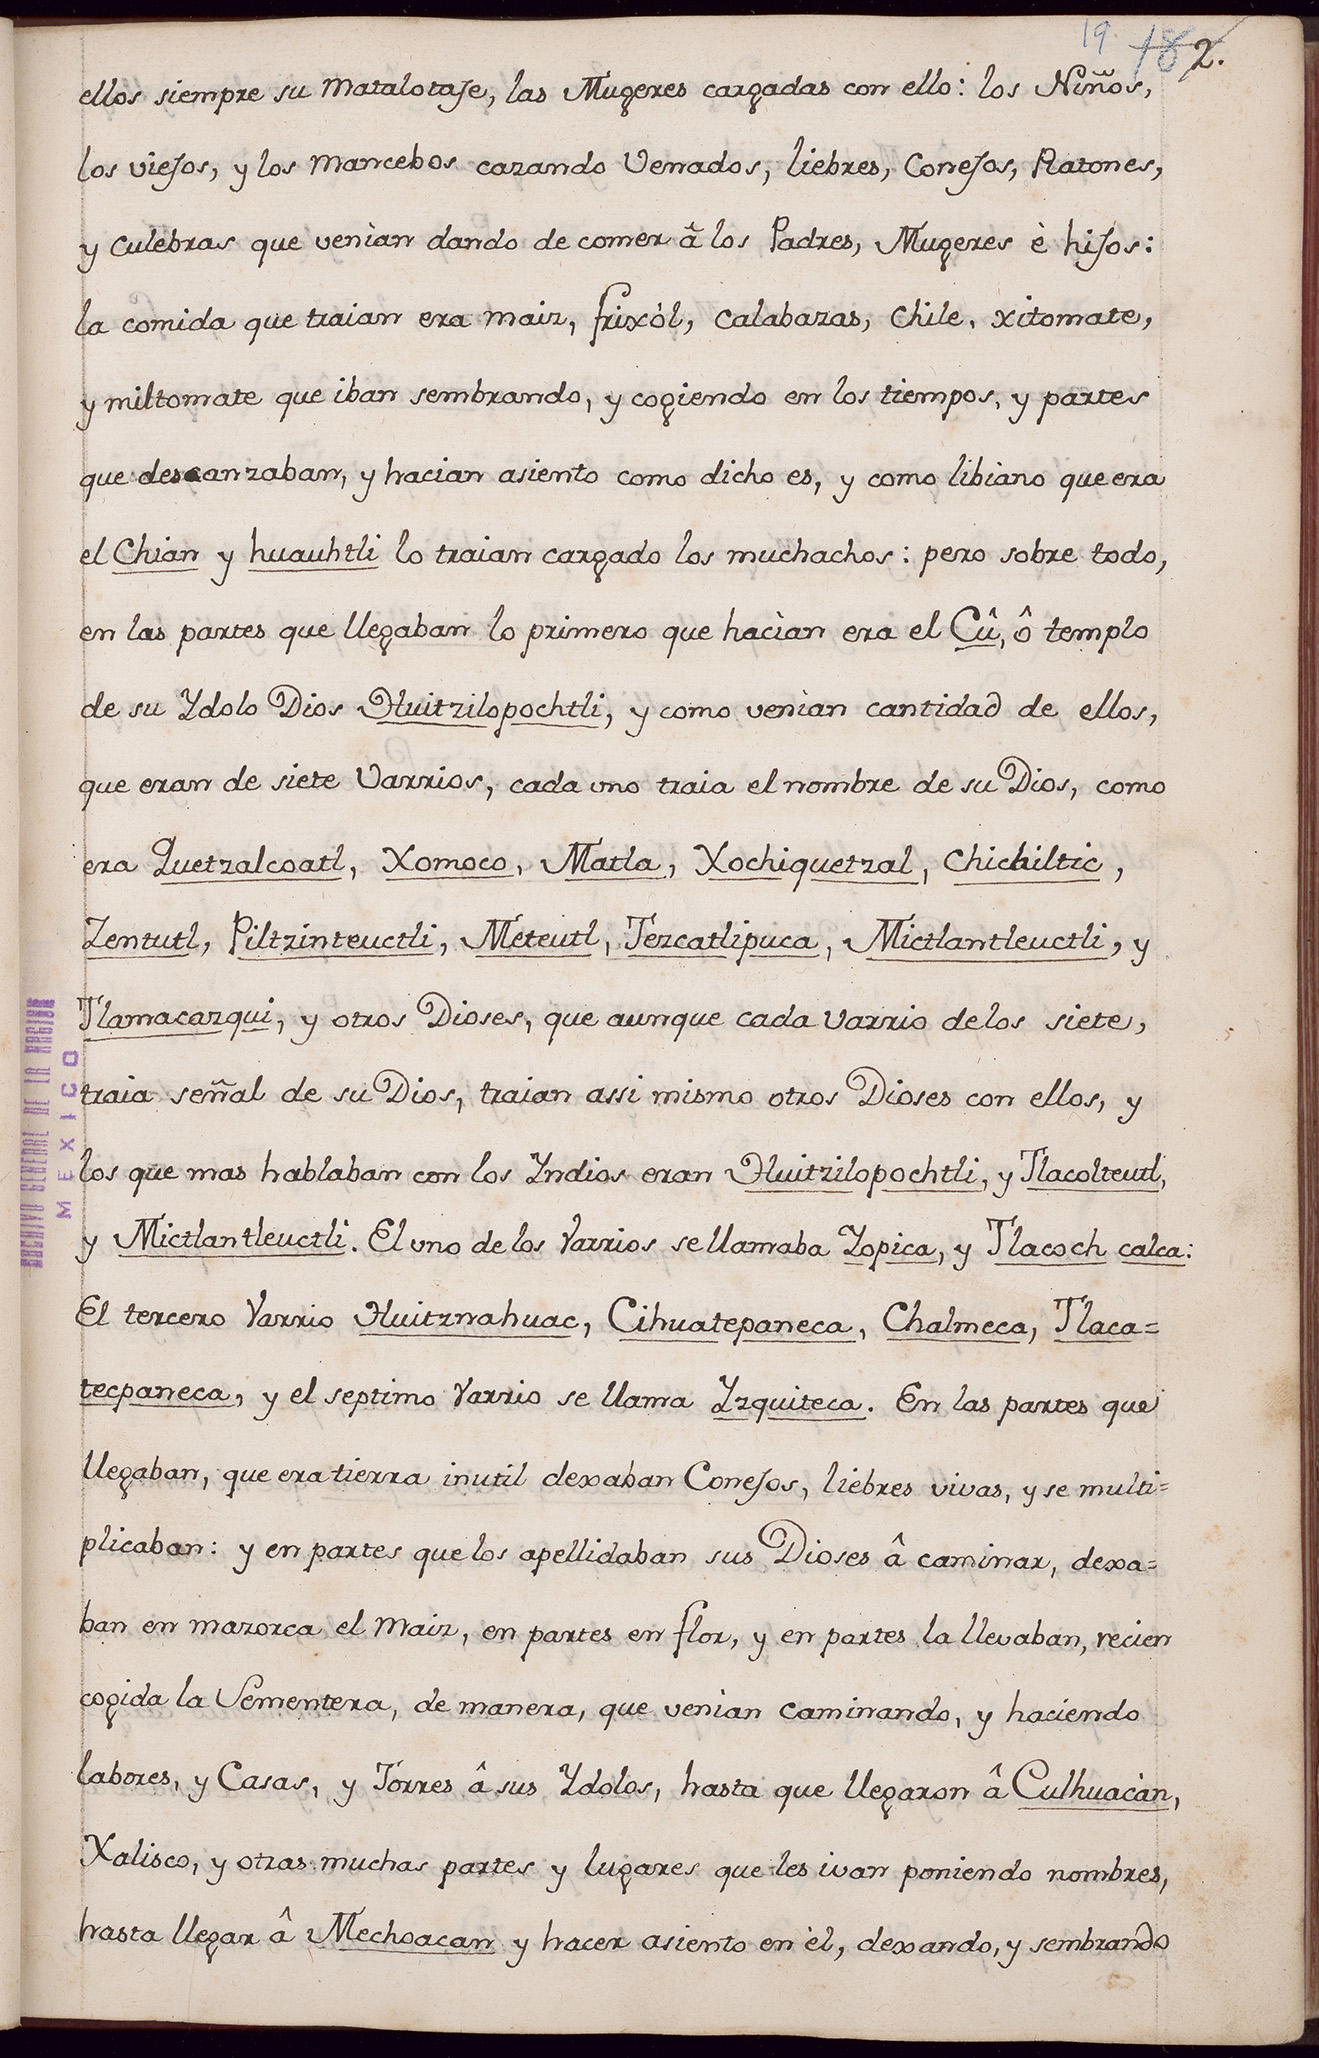 19. 18 2.
ellos siempre su Matalotaje, las Mugeres cargadas con ello: los Niños,
los viejos, y los Mancebos cazando Venados, liebres, Conejos, Ratones,
y Culebras que venian dando de comer â los Padres, Mugeres è hijos:
la comida que traian era maiz, frixòl, Calabazas, Chile, xitomate,
y miltomate que iban sembrando, y cogiendo en los tiempos, y partes
que descanzaban, y hacian asiento como dicho es, y como libiano que era
el Chian y huauhtli lo traian cargado los muchachos: pero sobre todo,
en las partes que llegaban lo primero que hacìan era el Cû, ô templo
de su Ydolo Dios Huitzilopochtli, y como venìan cantidad de ellos,
que eran de siete Varrios, cada uno traia el nombre de su Dios, como
era Quetzalcoatl, Xomoco, Matla, Xochiquetzal, Chichiltic,
Zentutl, Piltzinteuctli, Meteutl, Tezcatlipuca, Mictlantleuctli, y
Tlamacazqui, y otros Dioses, que aunque cada varrio de los siete,
traia señal de su Dios, traian assi mismo otros Dioses con ellos, y
los que mas hablaban con los Yndios eran Huitzilopochtli, y Tlacolteutl,
y Mictlantleuctli. El uno de los Varrios se llamaba Yopica, y Tlacoch calca:
El tercero Varrio Huitznahuac, Cihuatepaneca, Chalmeca, Tlaca=
tecpaneca, y el septimo Varrio se llama Yzquiteca. En las partes que
llegaban, que era tierra inutil dexaban Conejos, liebres vivas, y se multi=
plicaban: y en partes que los apellidaban sus Dioses â caminar, dexa=
ban en mazorca el Maiz, en partes en flor, y en partes la llevaban, recien
cogida la Sementera, de manera, que venìan caminando, y haciendo
labores, y Casas, y Torres â sus Ydolos, hasta que llegaron â Culhuacàn,
Xalisco, y otras muchas partes y lugares que les ivan poniendo nombres,
hasta llegar â Mechoacan y hacer asiento en èl, dexando, y sembrando
ARCHIVO GENERAL DE LA NACION
MEXICO